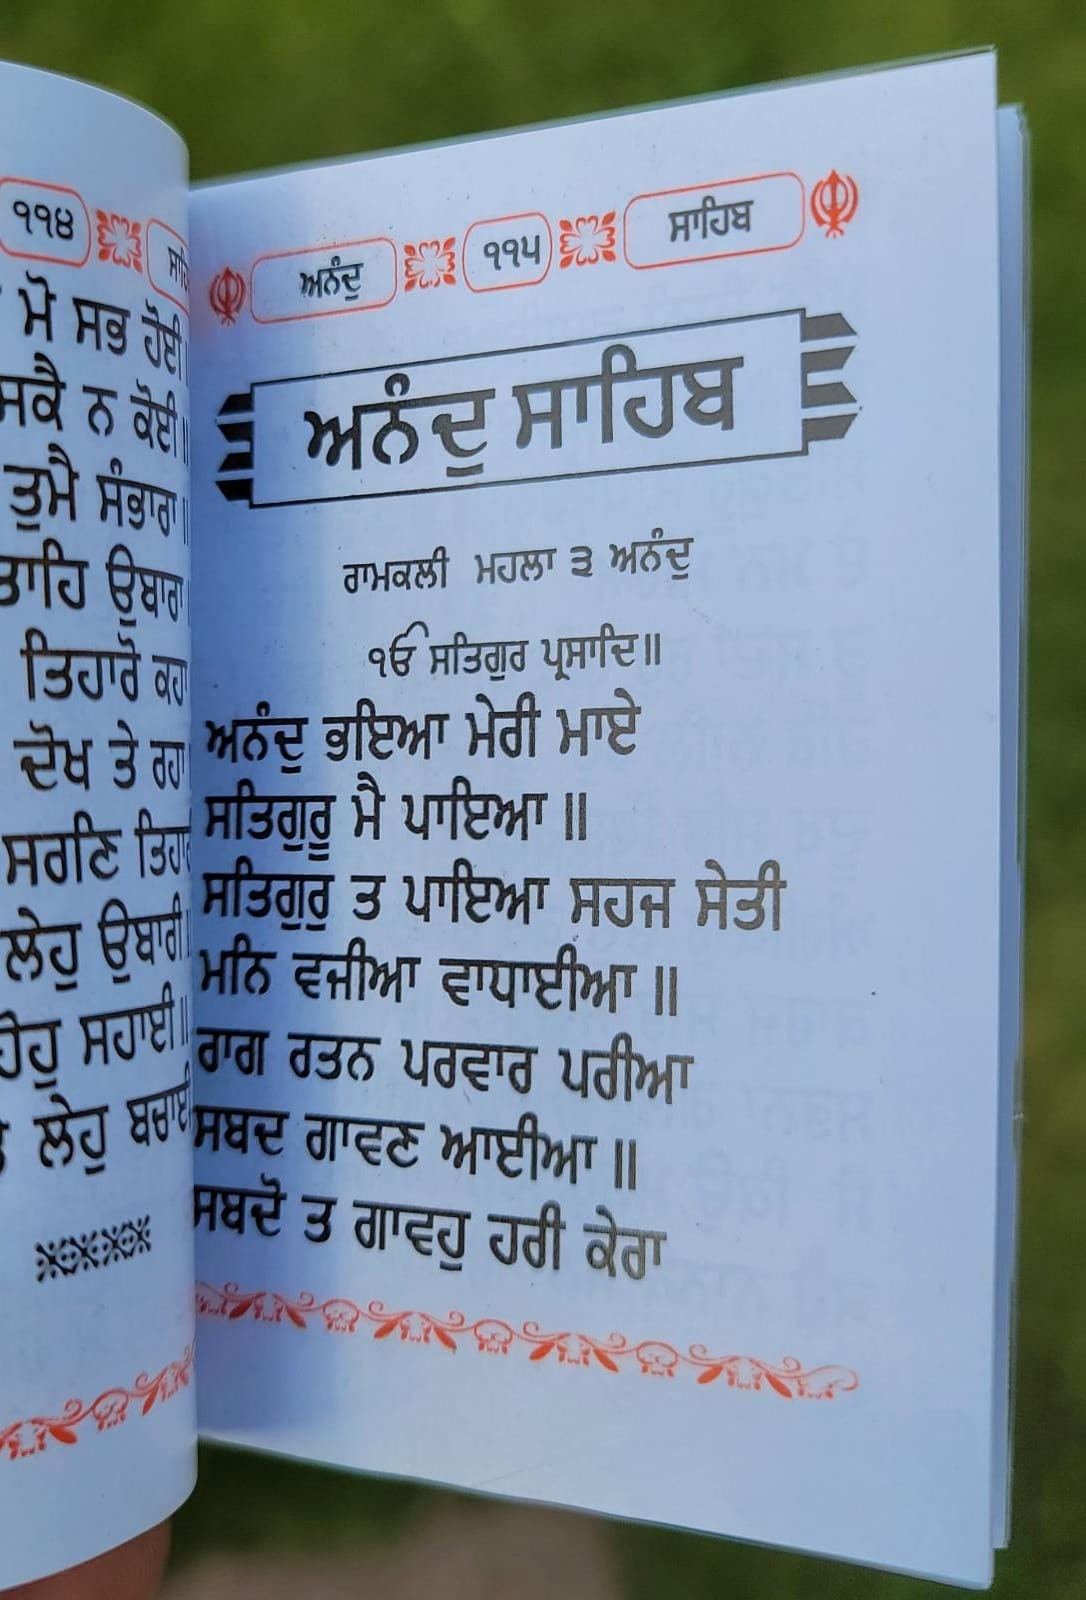 ੧੧੪
ਮੋ ਸਭ ਹੋਈ॥
ਸਕੈ ਨ ਕੋਈ॥
ਤੁਮੈ ਸੰਭਾਰਾ॥
ਤਾਹਿ ਉਬਾਰਾ
ਤਿਹਾਰੋ ਕਹਾ
ਦੋਖ ਤੇ ਰਹਾ
ਸਰਣਿ
ਲੇਹੁ ਉਬਾਰੀ॥
ਸਹਾਈ॥
ਲੇਹੁ ਬਚਾਈ
ਅਨੰਦੁ ੧੧੫ ਸਾਹਿਬ
ਅਨੰਦੁ ਸਾਹਿਬ
ਰਾਮਕਲੀ ਮਹਲਾ ੩ ਅਨੰਦੁ
ੴ ਸਤਿਗੁਰ ਪ੍ਰਸਾਦਿ॥
ਅਨੰਦੁ ਭਇਆ ਮੇਰੀ ਮਾਏ
ਸਤਿਗੁਰੂ ਮੈ ਪਾਇਆ ॥
ਸਤਿਗੁਰੁ ਤ ਪਾਇਆ ਸਹਜ ਸੇਤੀ
ਮਨਿ ਵਜੀਆ ਵਾਧਾਈਆ ॥
ਰਾਗ ਰਤਨ ਪਰਵਾਰ ਪਰੀਆ
ਸਬਦ ਗਾਵਣ ਆਈਆ ॥
ਸਬਦੋ ਤ ਗਾਵਹੁ ਹਰੀ ਕੇਰਾ